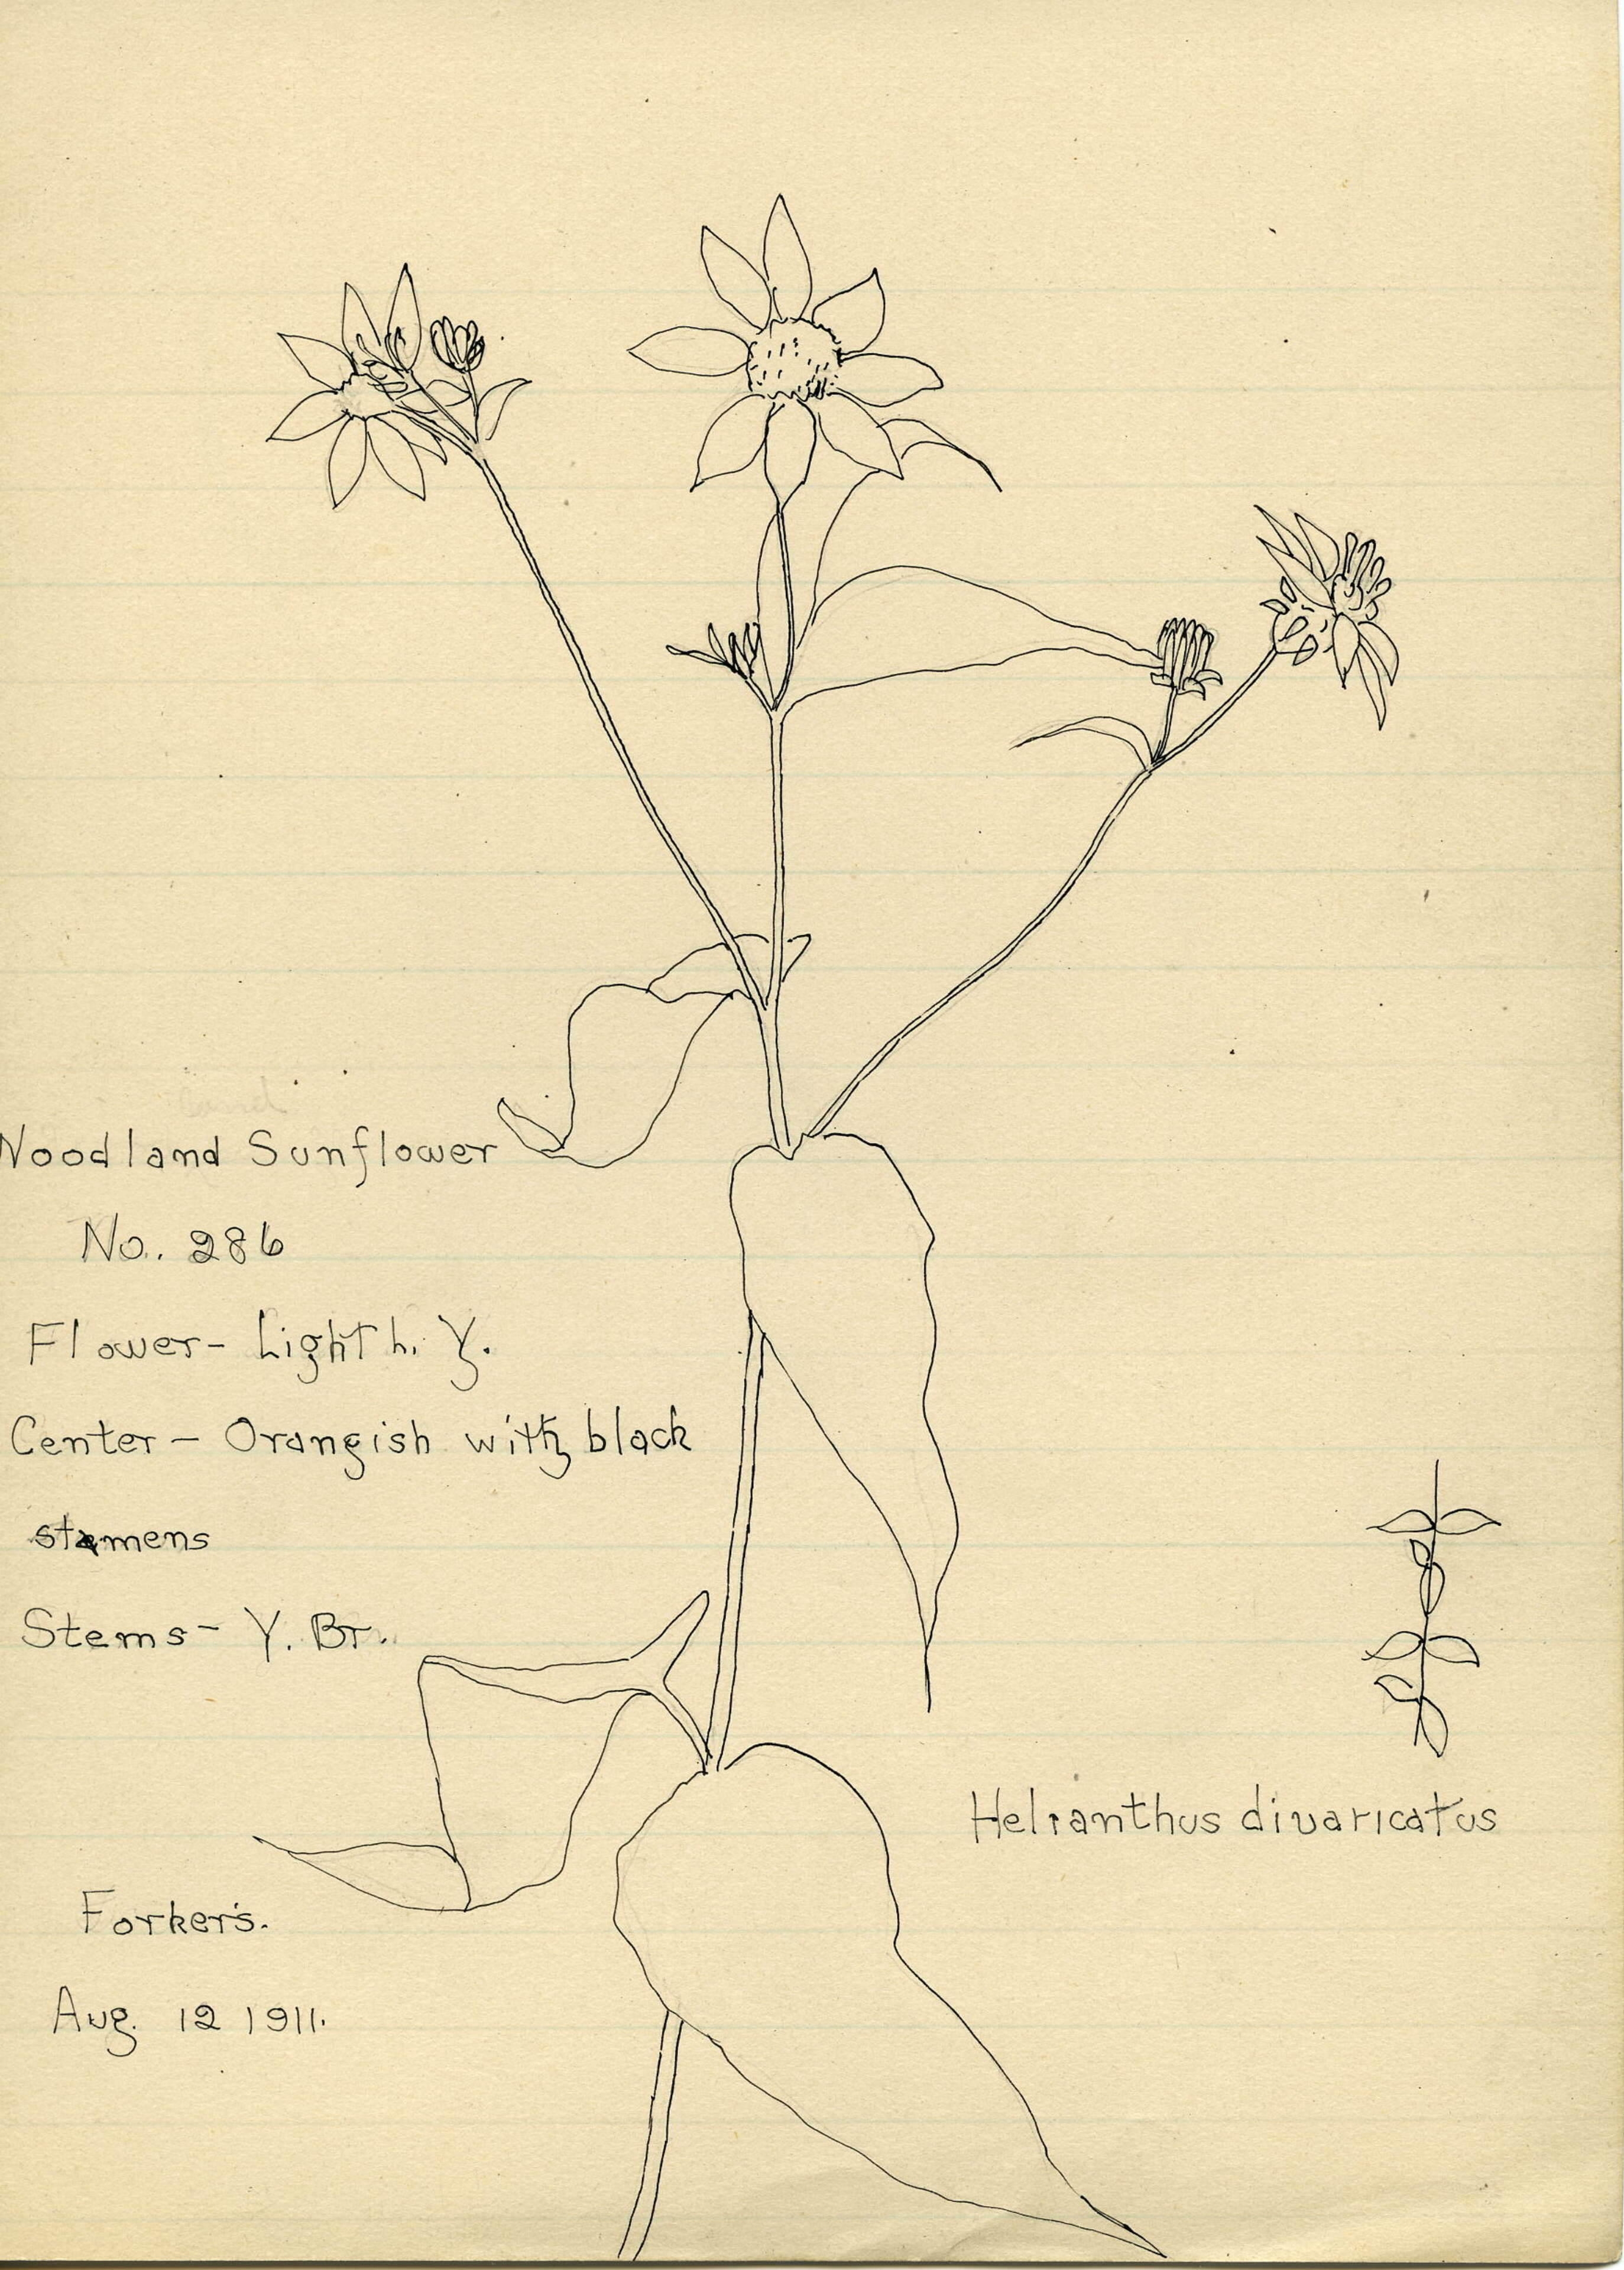 Woodland Sunflower
No. 286
Flower- Light h. Y.
Center - Orangish with black
stamens
Stems- Y. Br.
Helianthus divaricatus
Forker's.
Aug. 12 1911.